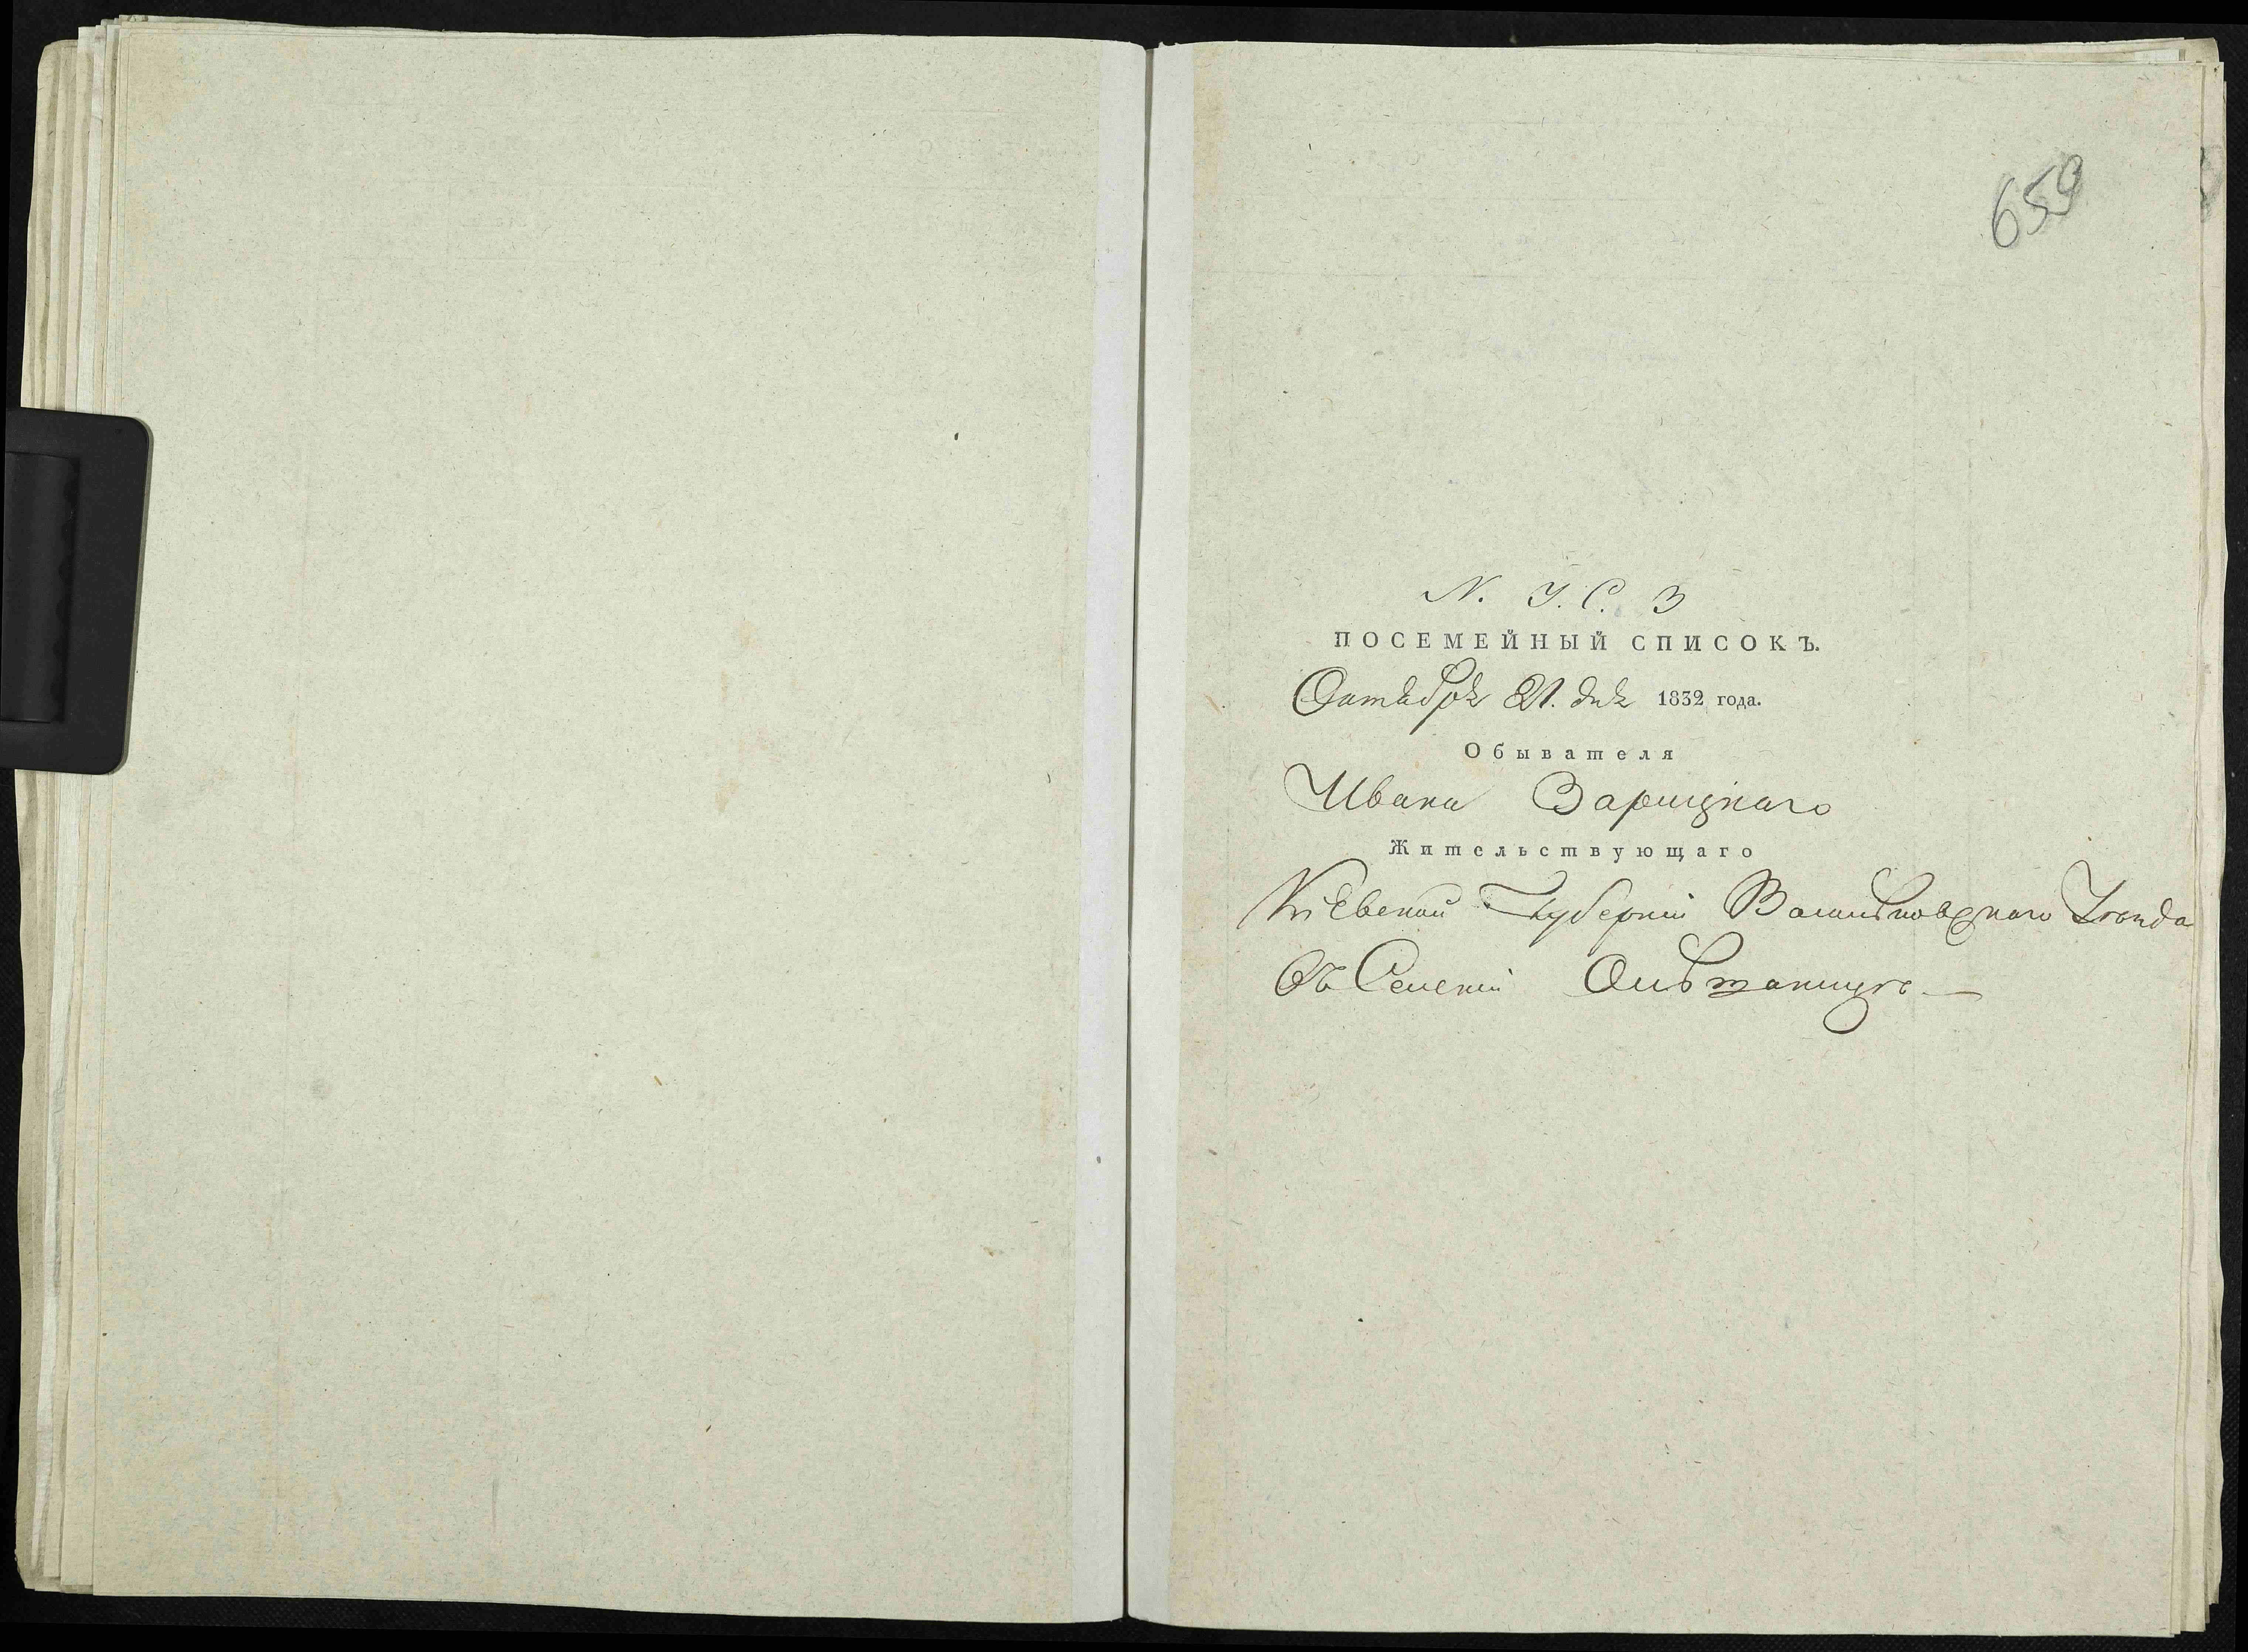 659
N. У. С. 3
ПОСЕМЕЙНЫЙ СПИСОКЪ.
Октября 21. дня 1832 года.
Обывателя
Ивана Зарицкаго
Жительствующаго
Кіевской Губерніи Васильковскаго Уезда
Въ Селеніи Ольшаницѣ —